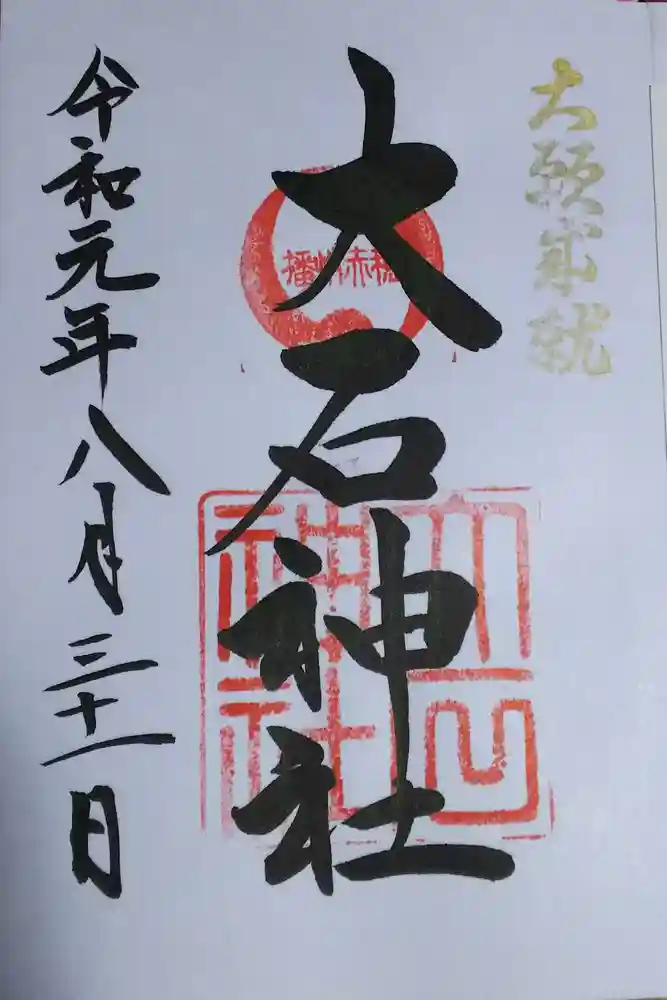 大願成就
播州赤穂
大石神社
大石神社
令和元年八月三十一日